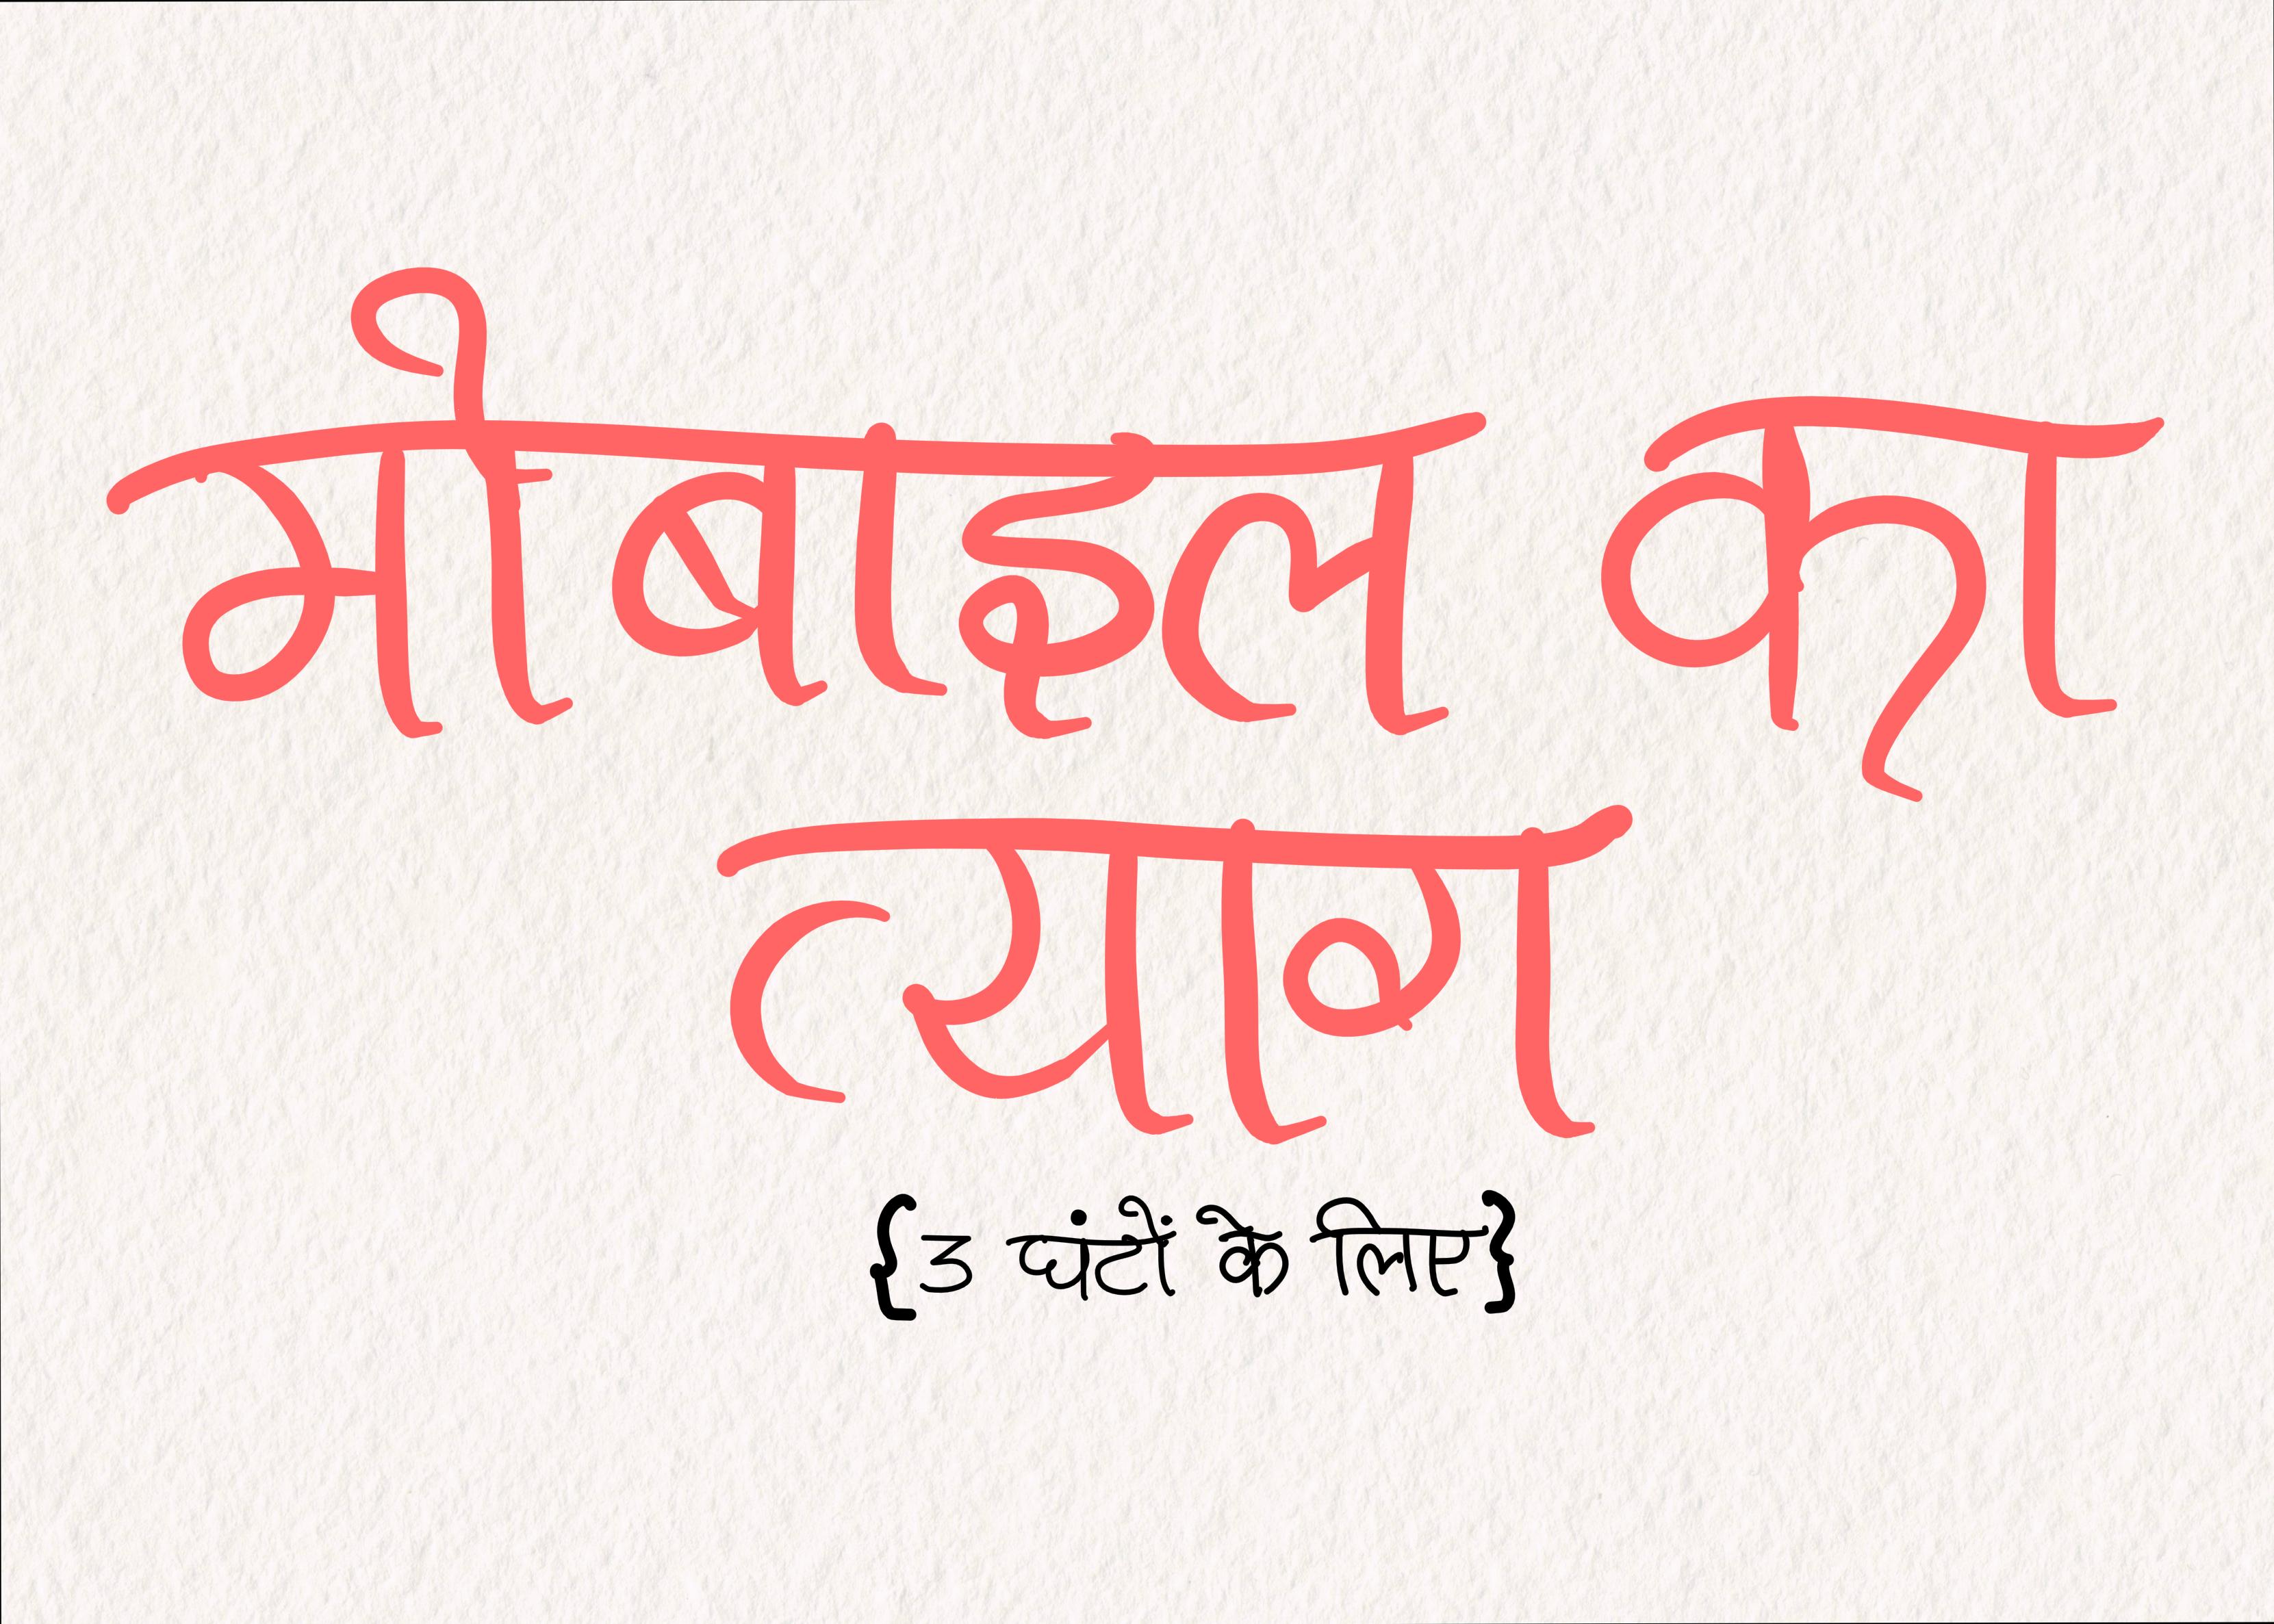 मोबाइल का
त्याग
{3 घंटों के लिए}